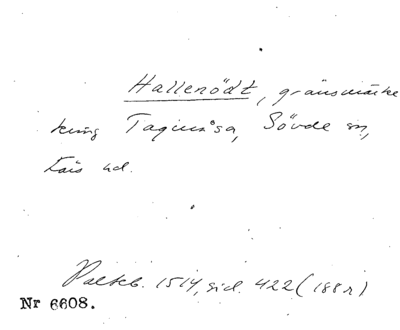 Hallenödt, gränsmärke
kring Tagimåsa, Sövde sn,
Färs hd.
Palteb. 1514, sid. 422 (188 r)
Nr 6608.